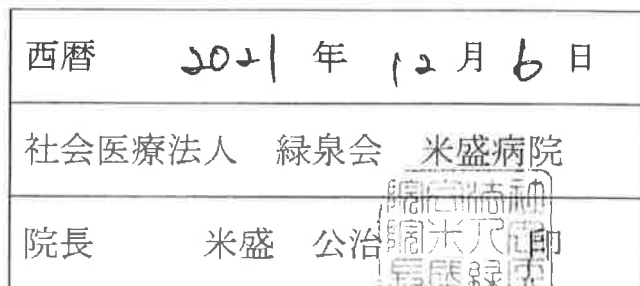 西暦 2021 年 12 月 6 日
社会医療法人 緑泉会 米盛病院
院長 米盛 公治 印